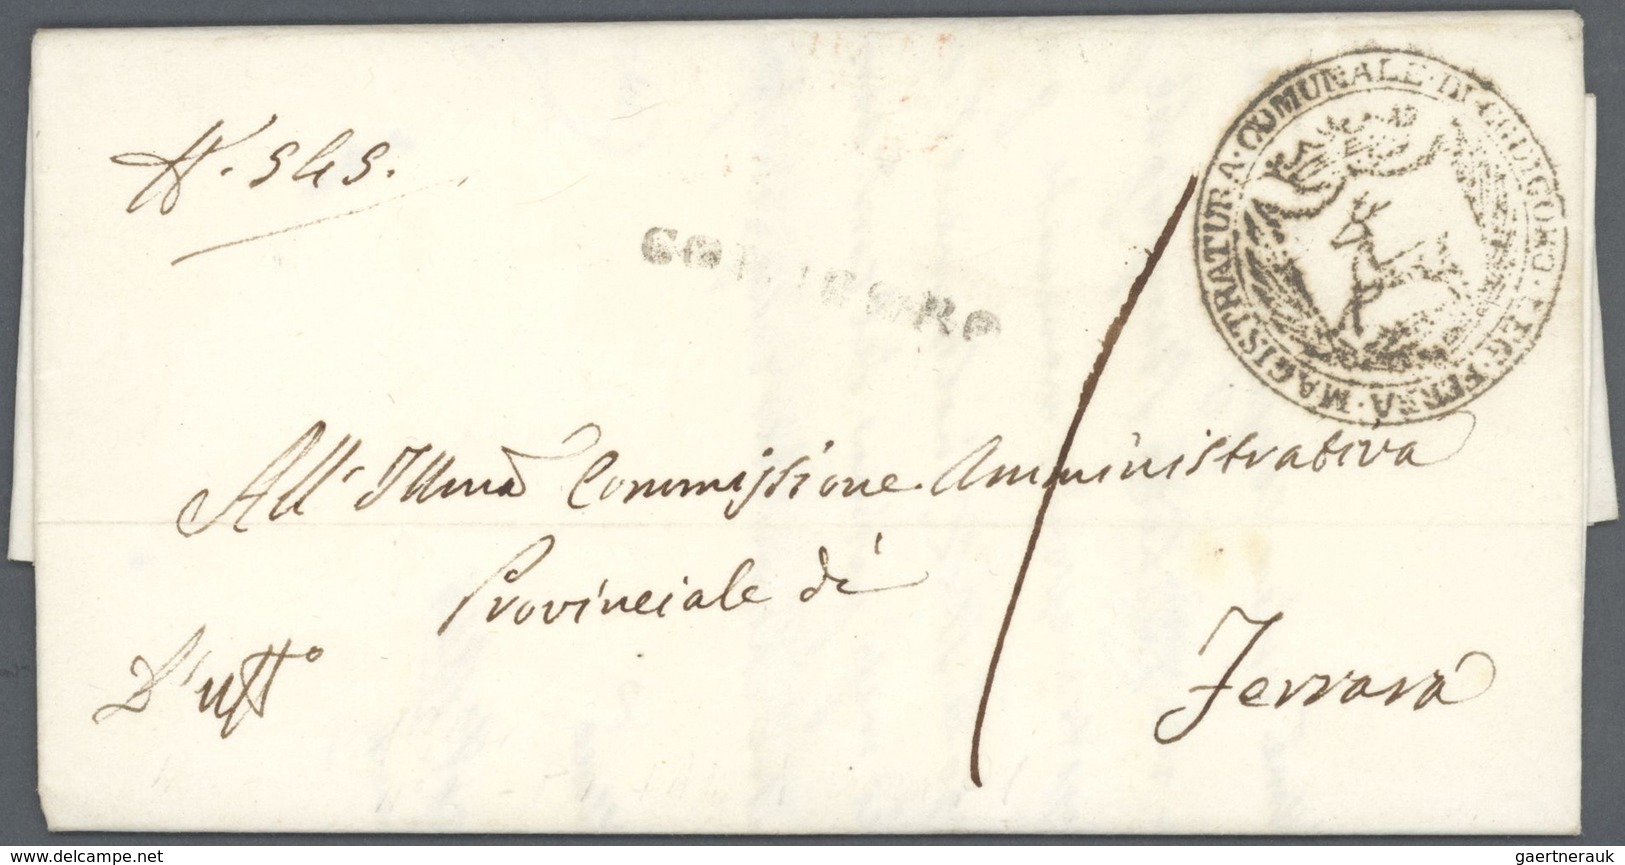 N. 545.
CODIGORO
MAGISTRATURA · COMUNALE · DI · CODIGORO · LEG · FERRA ·
All' Illma Commissione Amministrativa
Provinciale di
Ferrara
D'uff°
delcampe.net
gaertnerauk